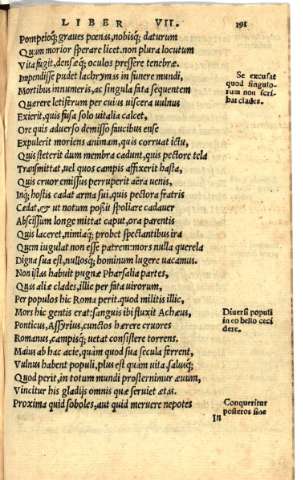 LIBER VII. 191
Pompeioq́; graues pœnas, nobisq́; daturum
Quum morior sperare licet. non plura locutum
Vita fugit, densæq́; oculos pressere tenebræ.
Impendisse pudet lachrymas in funere mundi,
Mortibus innumeris, ac singula fata sequentem
Quærere letiferum per cuius uiscera uulnus
Exierit, quis fusa solo uitalia calcet,
Ore quis aduerso demisso faucibus ense
Expulerit moriens animam, quis corruat ictu,
Quis steterit dum membra cadunt, qui pectore tela
Transmittat, uel quos campis affixerit hasta,
Quis cruor emissus perruperit aëra uenis,
Inq́; hostis cadat arma sui, quis pectora fratris
Cædat, & ut notum possit spoliare cadauer
Abscissum longe mittat caput, ora parentis
Quis laceret, nimiaq́; probet spectantibus ira
Quem iugulat non esse patrem: mors nulla querela
Digna sua est, nullosq́; hominum lugere uacamus.
Non istas habuit pugnæ Pharsalia partes,
Quas aliæ clades, illic per fata uirorum,
Per populos hic Roma perit. quod militis illic,
Mors hic gentis erat: sanguis ibi fluxit Achæus,
Ponticus, Assyrius, cunctos hærere cruores
Romanus, campisq́; uetat consistere torrens.
Maius ab hac acie, quàm quod sua secula ferrent,
Vulnus habent populi, plus est quàm uita, salusq́;
Quod perit, in totum mundi prosternimur æuum,
Vincitur his gladijs omnis quæ seruiet ætas.
Proxima quid soboles, aut quid meruere nepotes
In
Se excusat
quod singulo-
rum non scri-
bat clades.
Diuersi populi
in eo bello ceci
dere.
Conqueritur
posteros sine